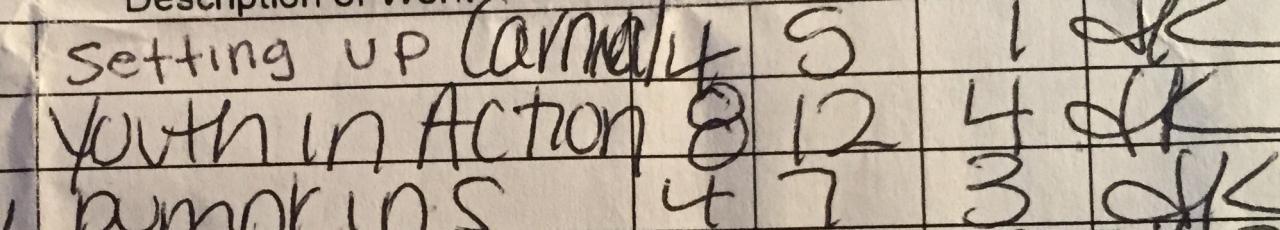 Description of Work
setting up Carnival 4 5 1 JK
Youth in Action 8 12 4 JK
pumpkins 4 7 3 JK